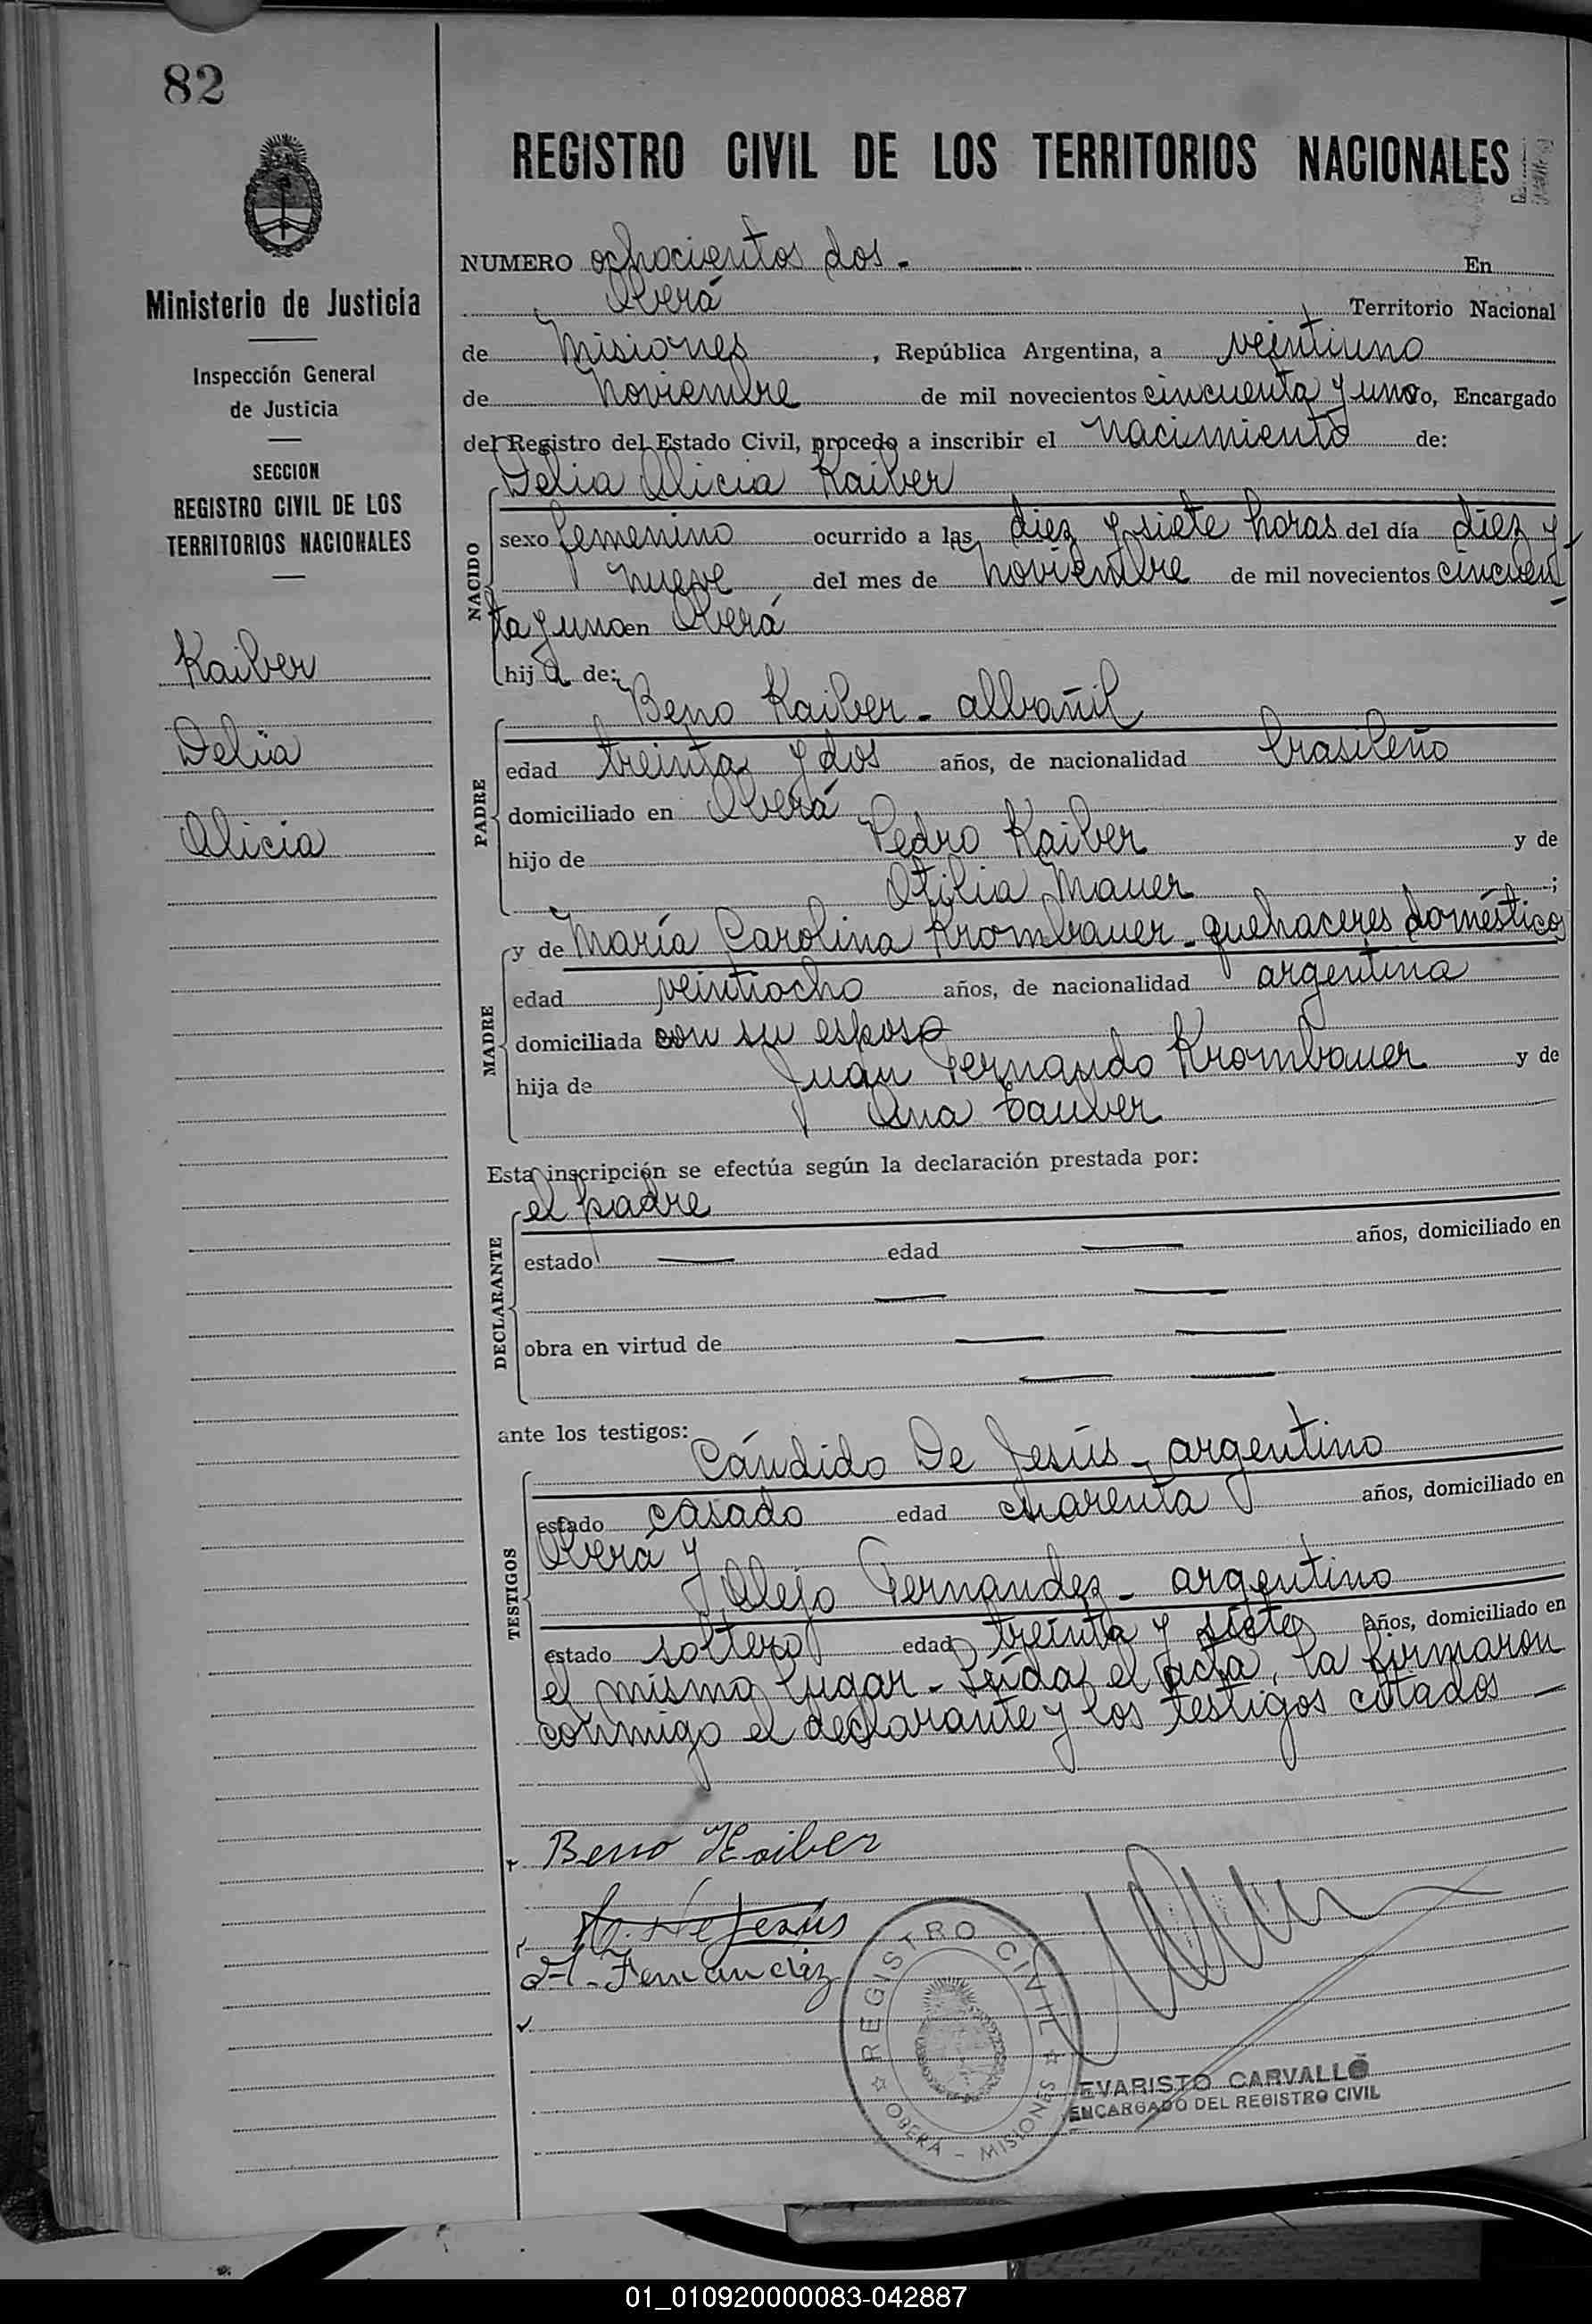 82
Ministerio de Justicia
Inspección General
de Justicia
SECCION
REGISTRO CIVIL DE LOS
TERRITORIOS NACIONALES
Kaiber
Delia
Alicia
REGISTRO CIVIL DE LOS TERRITORIOS NACIONALES
NUMERO ochocientos dos - En
Oberá Territorio Nacional
de Misiones, República Argentina, a veintiuno
de Noviembre de mil novecientos cincuenta y uno yo, Encargado
del Registro del Estado Civil, procedo a inscribir el Nacimiento de:
Delia Alicia Kaiber
NACIDO
sexo femenino ocurrido a las diez y siete horas del día diez y
nueve del mes de noviembre de mil novecientos cincuen
ta y uno en Oberá
hija de:
Beno Kaiber - albañil
PADRE
edad treinta y dos años, de nacionalidad brasileño
domiciliado en Oberá
hijo de Pedro Kaiber y de
Otilia Mauer ;
MADRE
y de María Carolina Krombauer - quehaceres domésticos
edad veintiocho años, de nacionalidad argentina
domiciliada con su esposo
hija de Juan Fernando Krombauer y de
Ana Tauber
Esta inscripción se efectúa según la declaración prestada por:
el padre
DECLARANTE
estado — edad — años, domiciliado en
— —
obra en virtud de — —
— —
ante los testigos:
Cándido De Jesús - argentino
TESTIGOS
estado casado edad cuarenta años, domiciliado en
Oberá y
Alejo Fernandez - argentino
estado soltero edad treinta y siete años, domiciliado en
el mismo lugar - Leída el acta, la firmaron
conmigo el declarante y los testigos citados —
Beno Kaiber
De Jesús
A. Fernandez
REGISTRO CIVIL
OBERA - MISIONES
EVARISTO CARVALLO
ENCARGADO DEL REGISTRO CIVIL
01_010920000083-042887